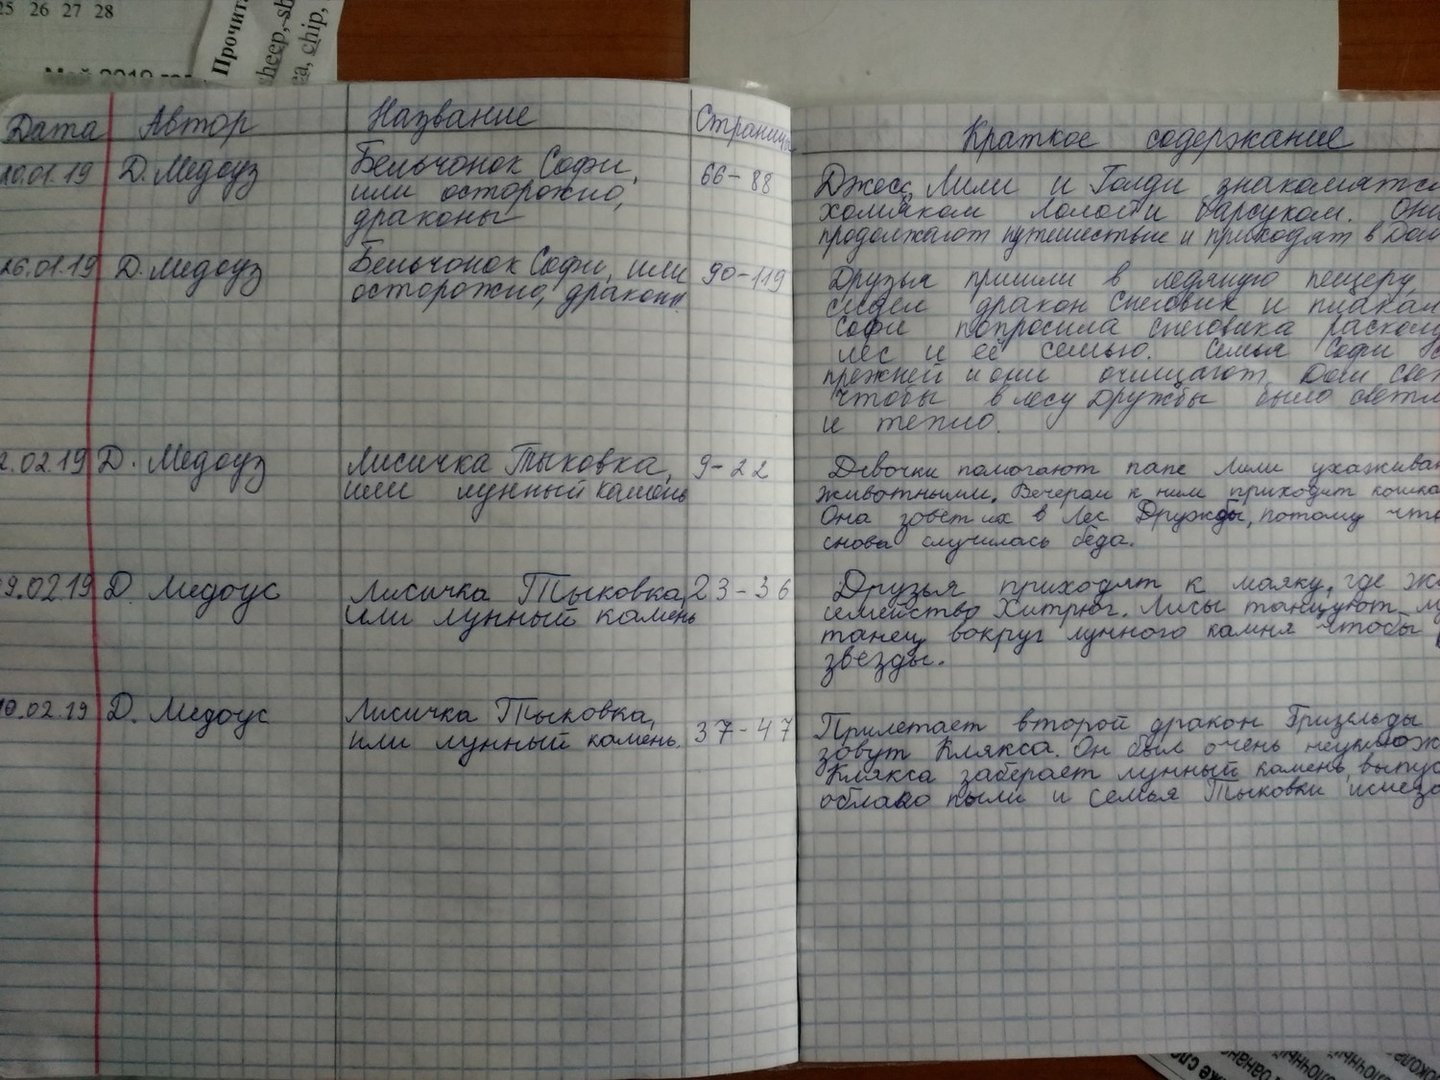 25 26 27 28
Прочит
sheep, sh
ea, chip,
Май 2019 го
Дата Автор Название Страницы Краткое содержание
20.01.19 Д. Медоуз Бельчонок Софи, 66-88
или осторожно,
драконы
Джесс, Лили и Голди знакомятся
хомяком барсуком. Они
продолжают путешествие и приходят в Дом
26.01.19 Д. Медоуз Бельчонок Софи, или 90-119
осторожно, драконы
Друзья пришли в ледяную пещеру,
сидел дракон Снеговик и плакал
Софи попросила снеговика раскол
лес и её семью. Семья Софи
прежней и они очищают Дом свет
чтобы в лесу Дружбы было светл
и тепло.
2.02.19 Д. Медоуз Лисичка Тыковка, 9-22
или лунный камень
Девочки помогают папе Лили ухаживат
животными. Вечером к ним приходит кошка
Она зовет их в Лес Дружбы, потому что
снова случилась беда.
09.02.19 Д. Медоус Лисичка Тыковка, 23-36
или лунный камень
Друзья приходят к маяку, где жи
семейство Хитрюг. Лисы танцуют лу
танец вокруг лунного камня чтобы
звезды.
10.02.19 Д. Медоус Лисичка Тыковка, 37-47
или лунный камень.
Прилетает второй дракон Гризельды
зовут Клякса. Он был очень неуклюж
Клякса заберает лунный камень, выпус
облако пыли и семья Тыковки исчеза